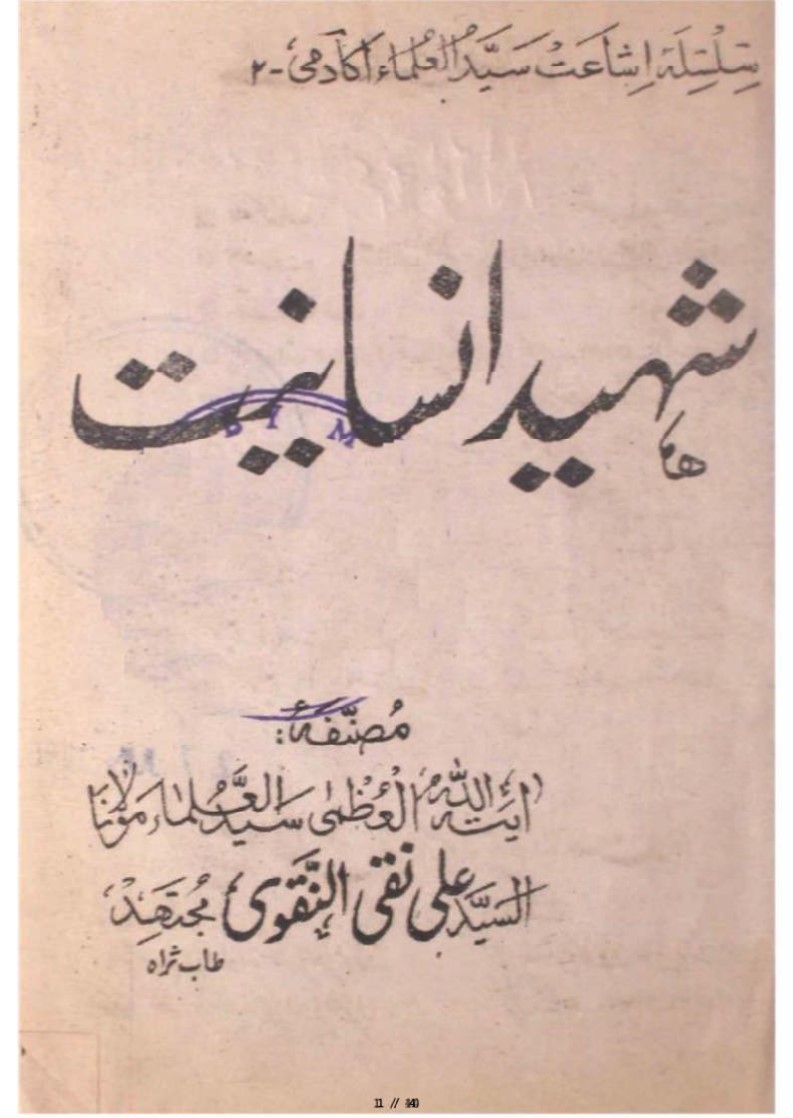 سِلْسِلَۂ اِشَاعَتْ سَیَّدُ العُلماء اَکادمیٔ - ۲
شہید انسانیت
مُصنّفۂ:
آیتہ اللّٰہ العُظمٰی سیّد العُلماء مولانا
السیّد علی نقی النّقوی مجتهد
طاب ثراہ